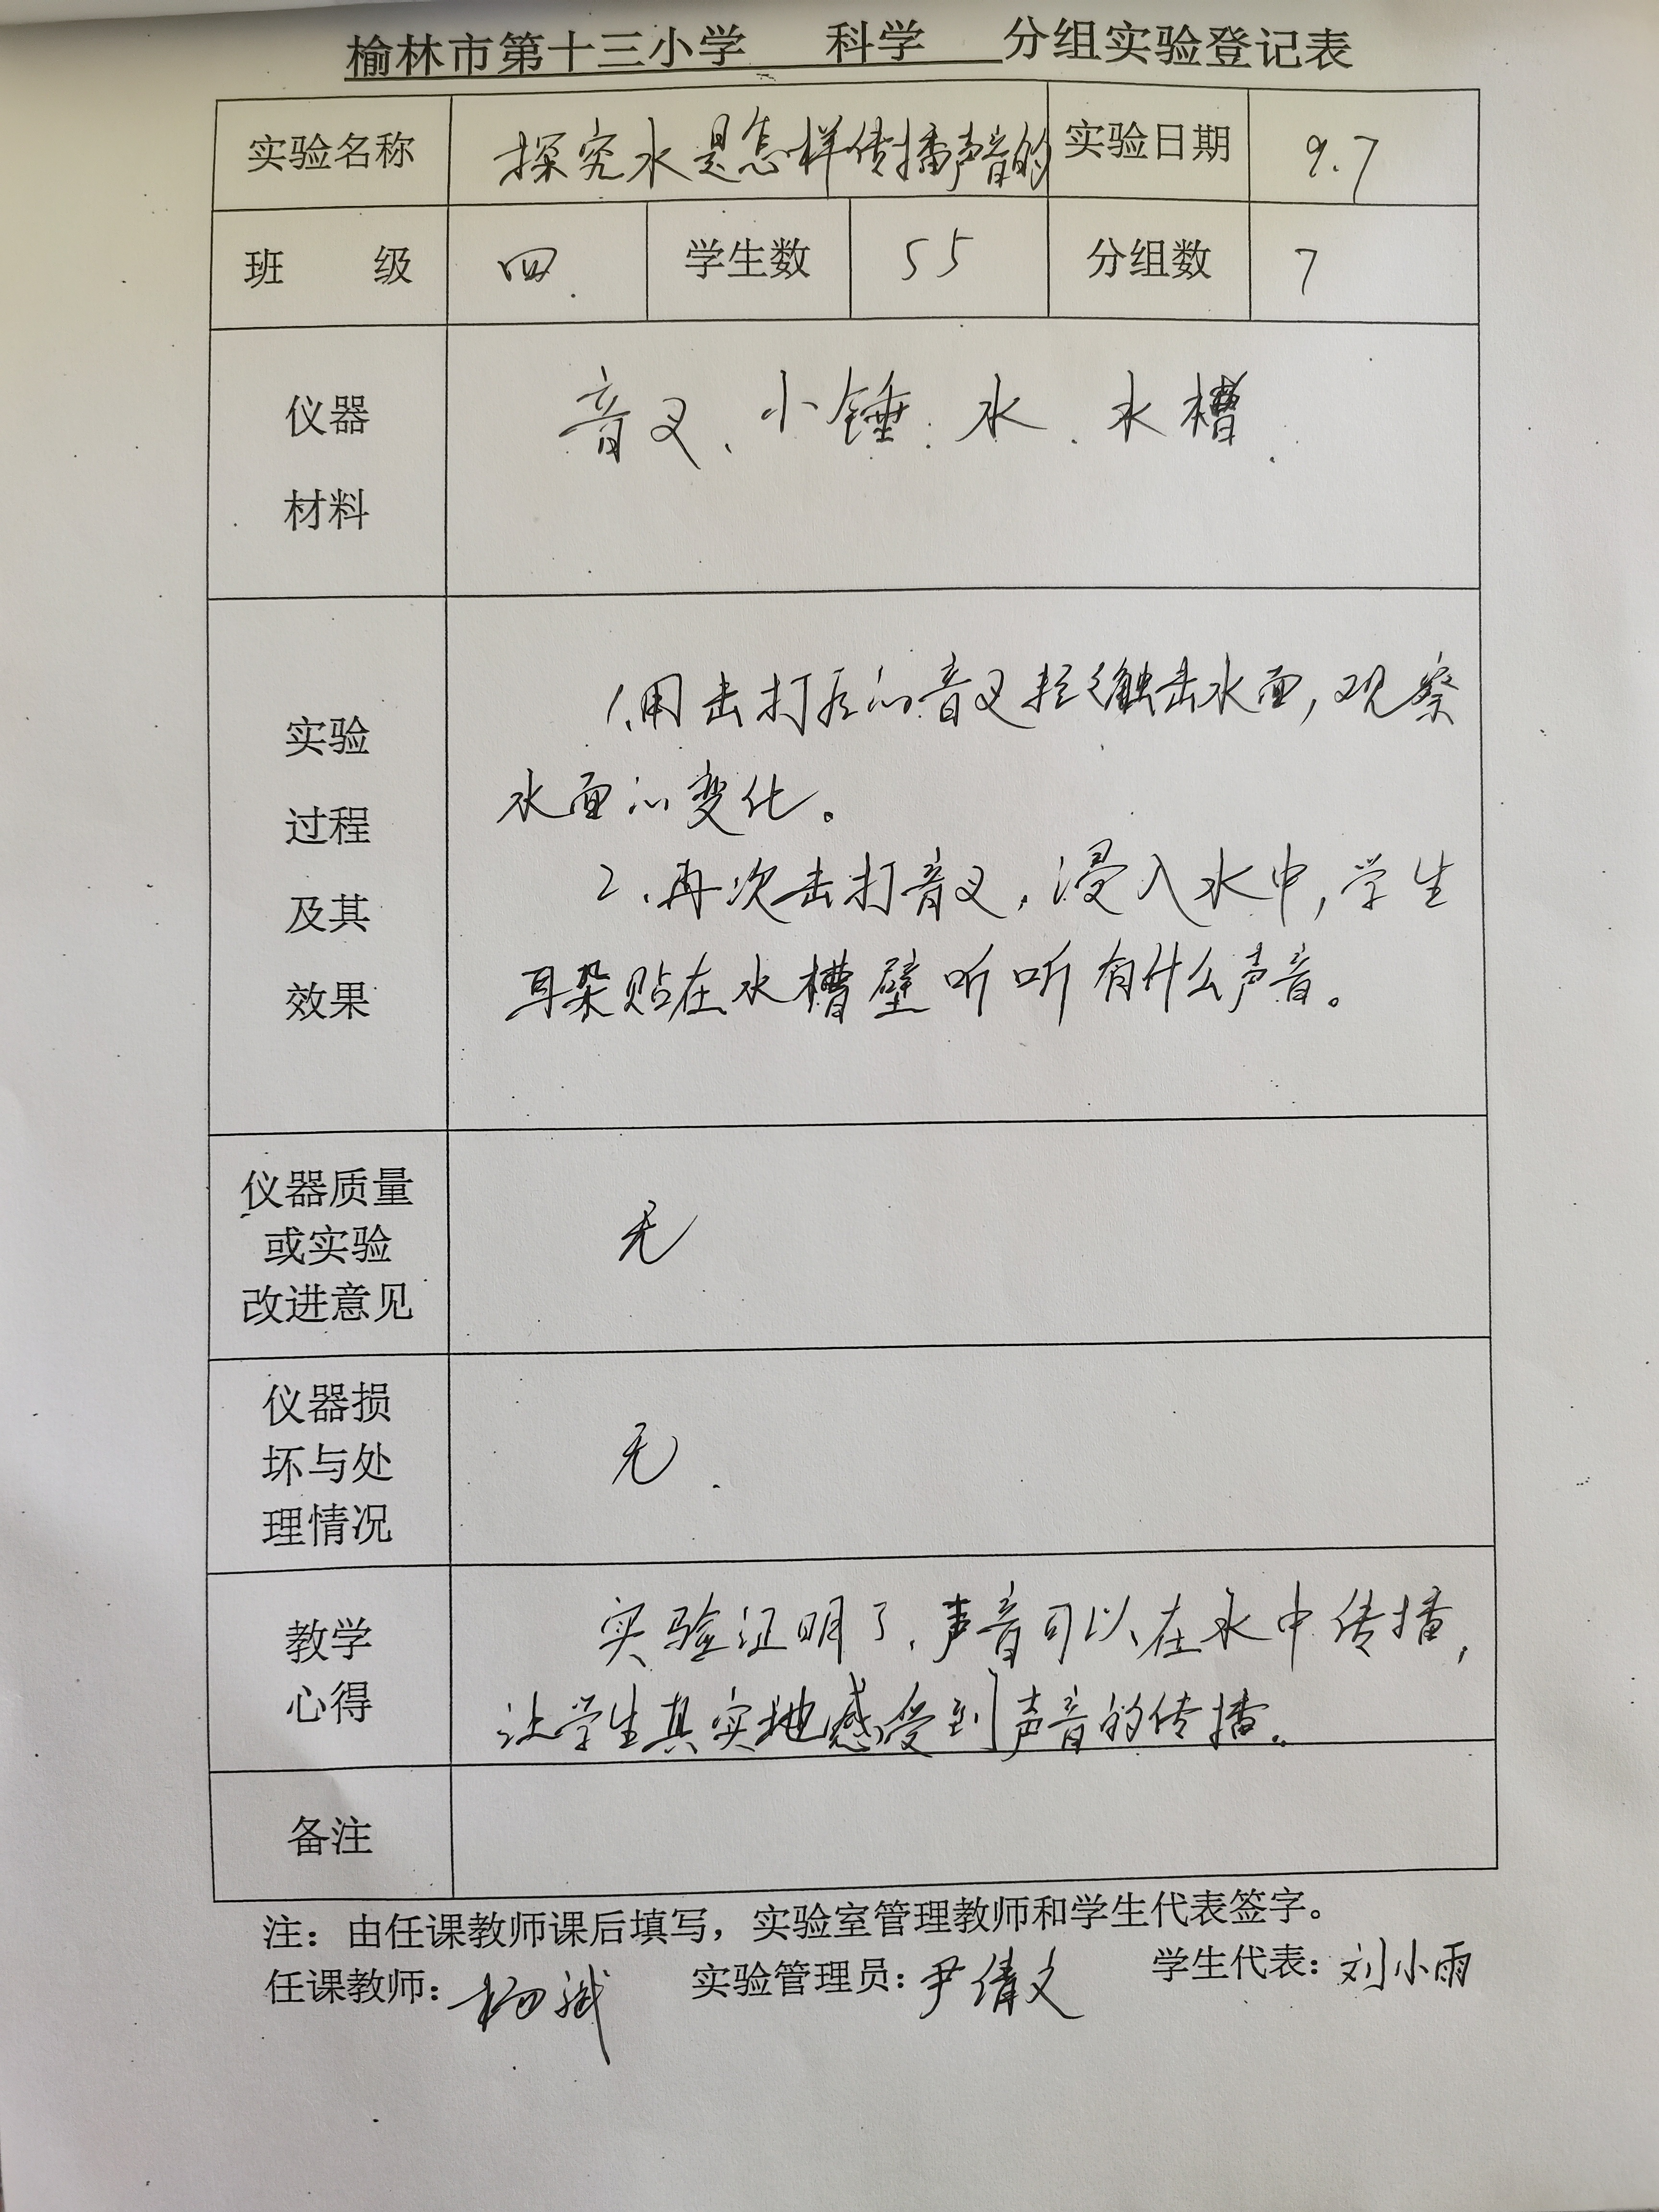 榆林市第十三小学 科学 分组实验登记表
实验名称 探究水是怎样传播声音的 实验日期 9.7
班 级 四 学生数 55 分组数 7
仪器
材料
音叉、小锤、水、水槽.
实验
过程
及其
效果
1.用击打后的音叉轻轻触击水面,观察
水面的变化。
2.再次击打音叉,浸入水中,学生
耳朵贴在水槽壁听听有什么声音。
仪器质量
或实验
改进意见
无
仪器损
坏与处
理情况
无.
教学
心得
实验证明了,声音可以在水中传播,
让学生真实地感受到声音的传播。
备注
注：由任课教师课后填写，实验室管理教师和学生代表签字。
任课教师： 杨斌 实验管理员： 尹倩文 学生代表： 刘小雨